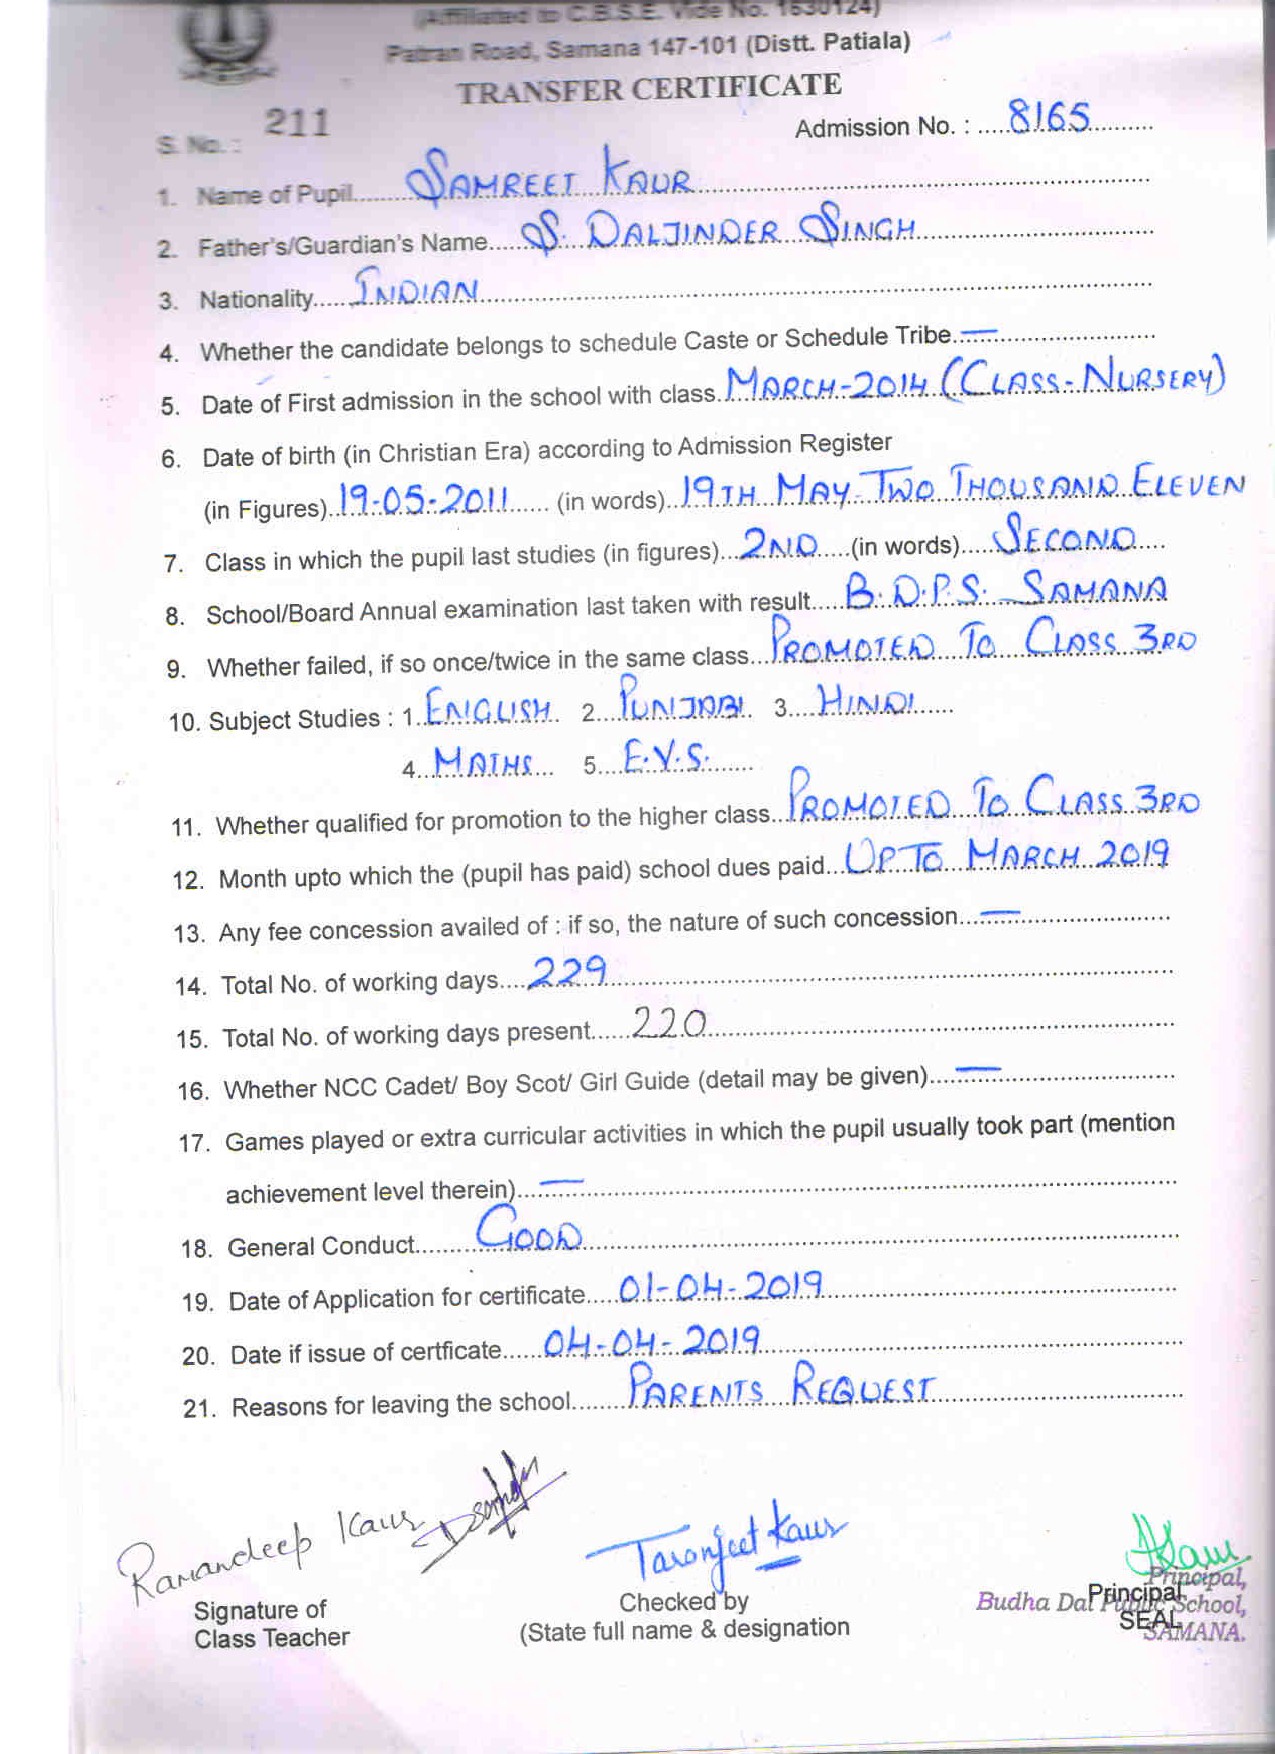 (Affiliated to C.B.S.E. Vide No. 1630124)
Patran Road, Samana 147-101 (Distt. Patiala)
TRANSFER CERTIFICATE
S. No. : 211
Admission No. : 8165
1. Name of Pupil SAMREET KAUR
2. Father's/Guardian's Name S. DALJINDER SINGH
3. Nationality INDIAN
4. Whether the candidate belongs to schedule Caste or Schedule Tribe —
5. Date of First admission in the school with class MARCH-2014 (CLASS-NURSERY)
6. Date of birth (in Christian Era) according to Admission Register
(in Figures) 19-05-2011 (in words) 19TH MAY-TWO THOUSAND ELEVEN
7. Class in which the pupil last studies (in figures) 2ND (in words) SECOND
8. School/Board Annual examination last taken with result B.D.P.S. SAMANA
9. Whether failed, if so once/twice in the same class PROMOTED TO CLASS 3RD
10. Subject Studies : 1. ENGLISH 2. PUNJABI 3. HINDI
4. MATHS 5. E.V.S.
11. Whether qualified for promotion to the higher class PROMOTED TO CLASS 3RD
12. Month upto which the (pupil has paid) school dues paid UPTO MARCH 2019
13. Any fee concession availed of : if so, the nature of such concession —
14. Total No. of working days 229
15. Total No. of working days present 220
16. Whether NCC Cadet/ Boy Scot/ Girl Guide (detail may be given) —
17. Games played or extra curricular activities in which the pupil usually took part (mention
achievement level therein) —
18. General Conduct GOOD
19. Date of Application for certificate 01-04-2019
20. Date if issue of certficate 04-04-2019
21. Reasons for leaving the school PARENTS REQUEST
Ramandeep Kaur
Taranjeet Kaur
Signature of
Class Teacher
Checked by
(State full name & designation
Principal
SEAL
Principal,
Budha Dal Public School,
SAMANA.